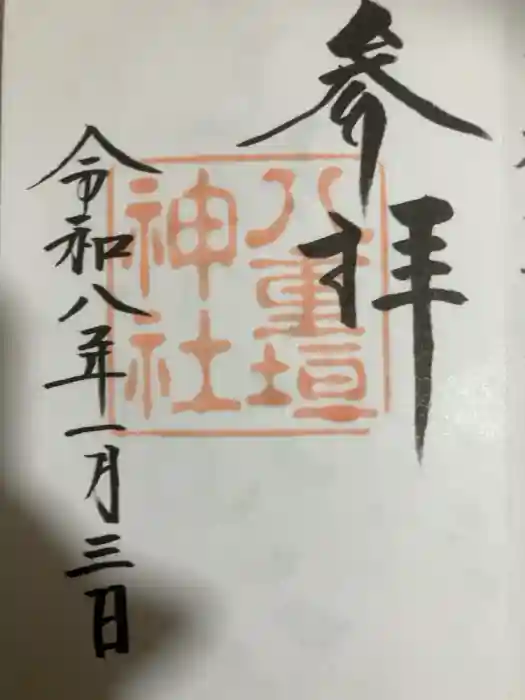 参拝
八重垣
神社
令和八年一月三日